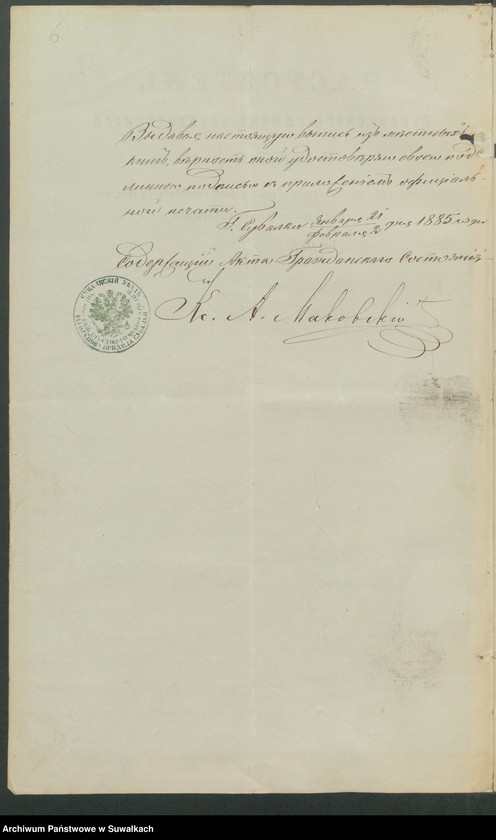 6
Выдавая настоящую выпись изъ местныхъ
книгъ, верность оной удостоверяю своею под-
линною подписью съ приложеніемъ официаль-
ной печати.
Г. Сувалки Января 21 / Февраля 2 дня 1885 года
Содержащій Акты Гражданскаго Состоянія
Кс. А. Маковскій
Archiwum Państwowe w Suwałkach